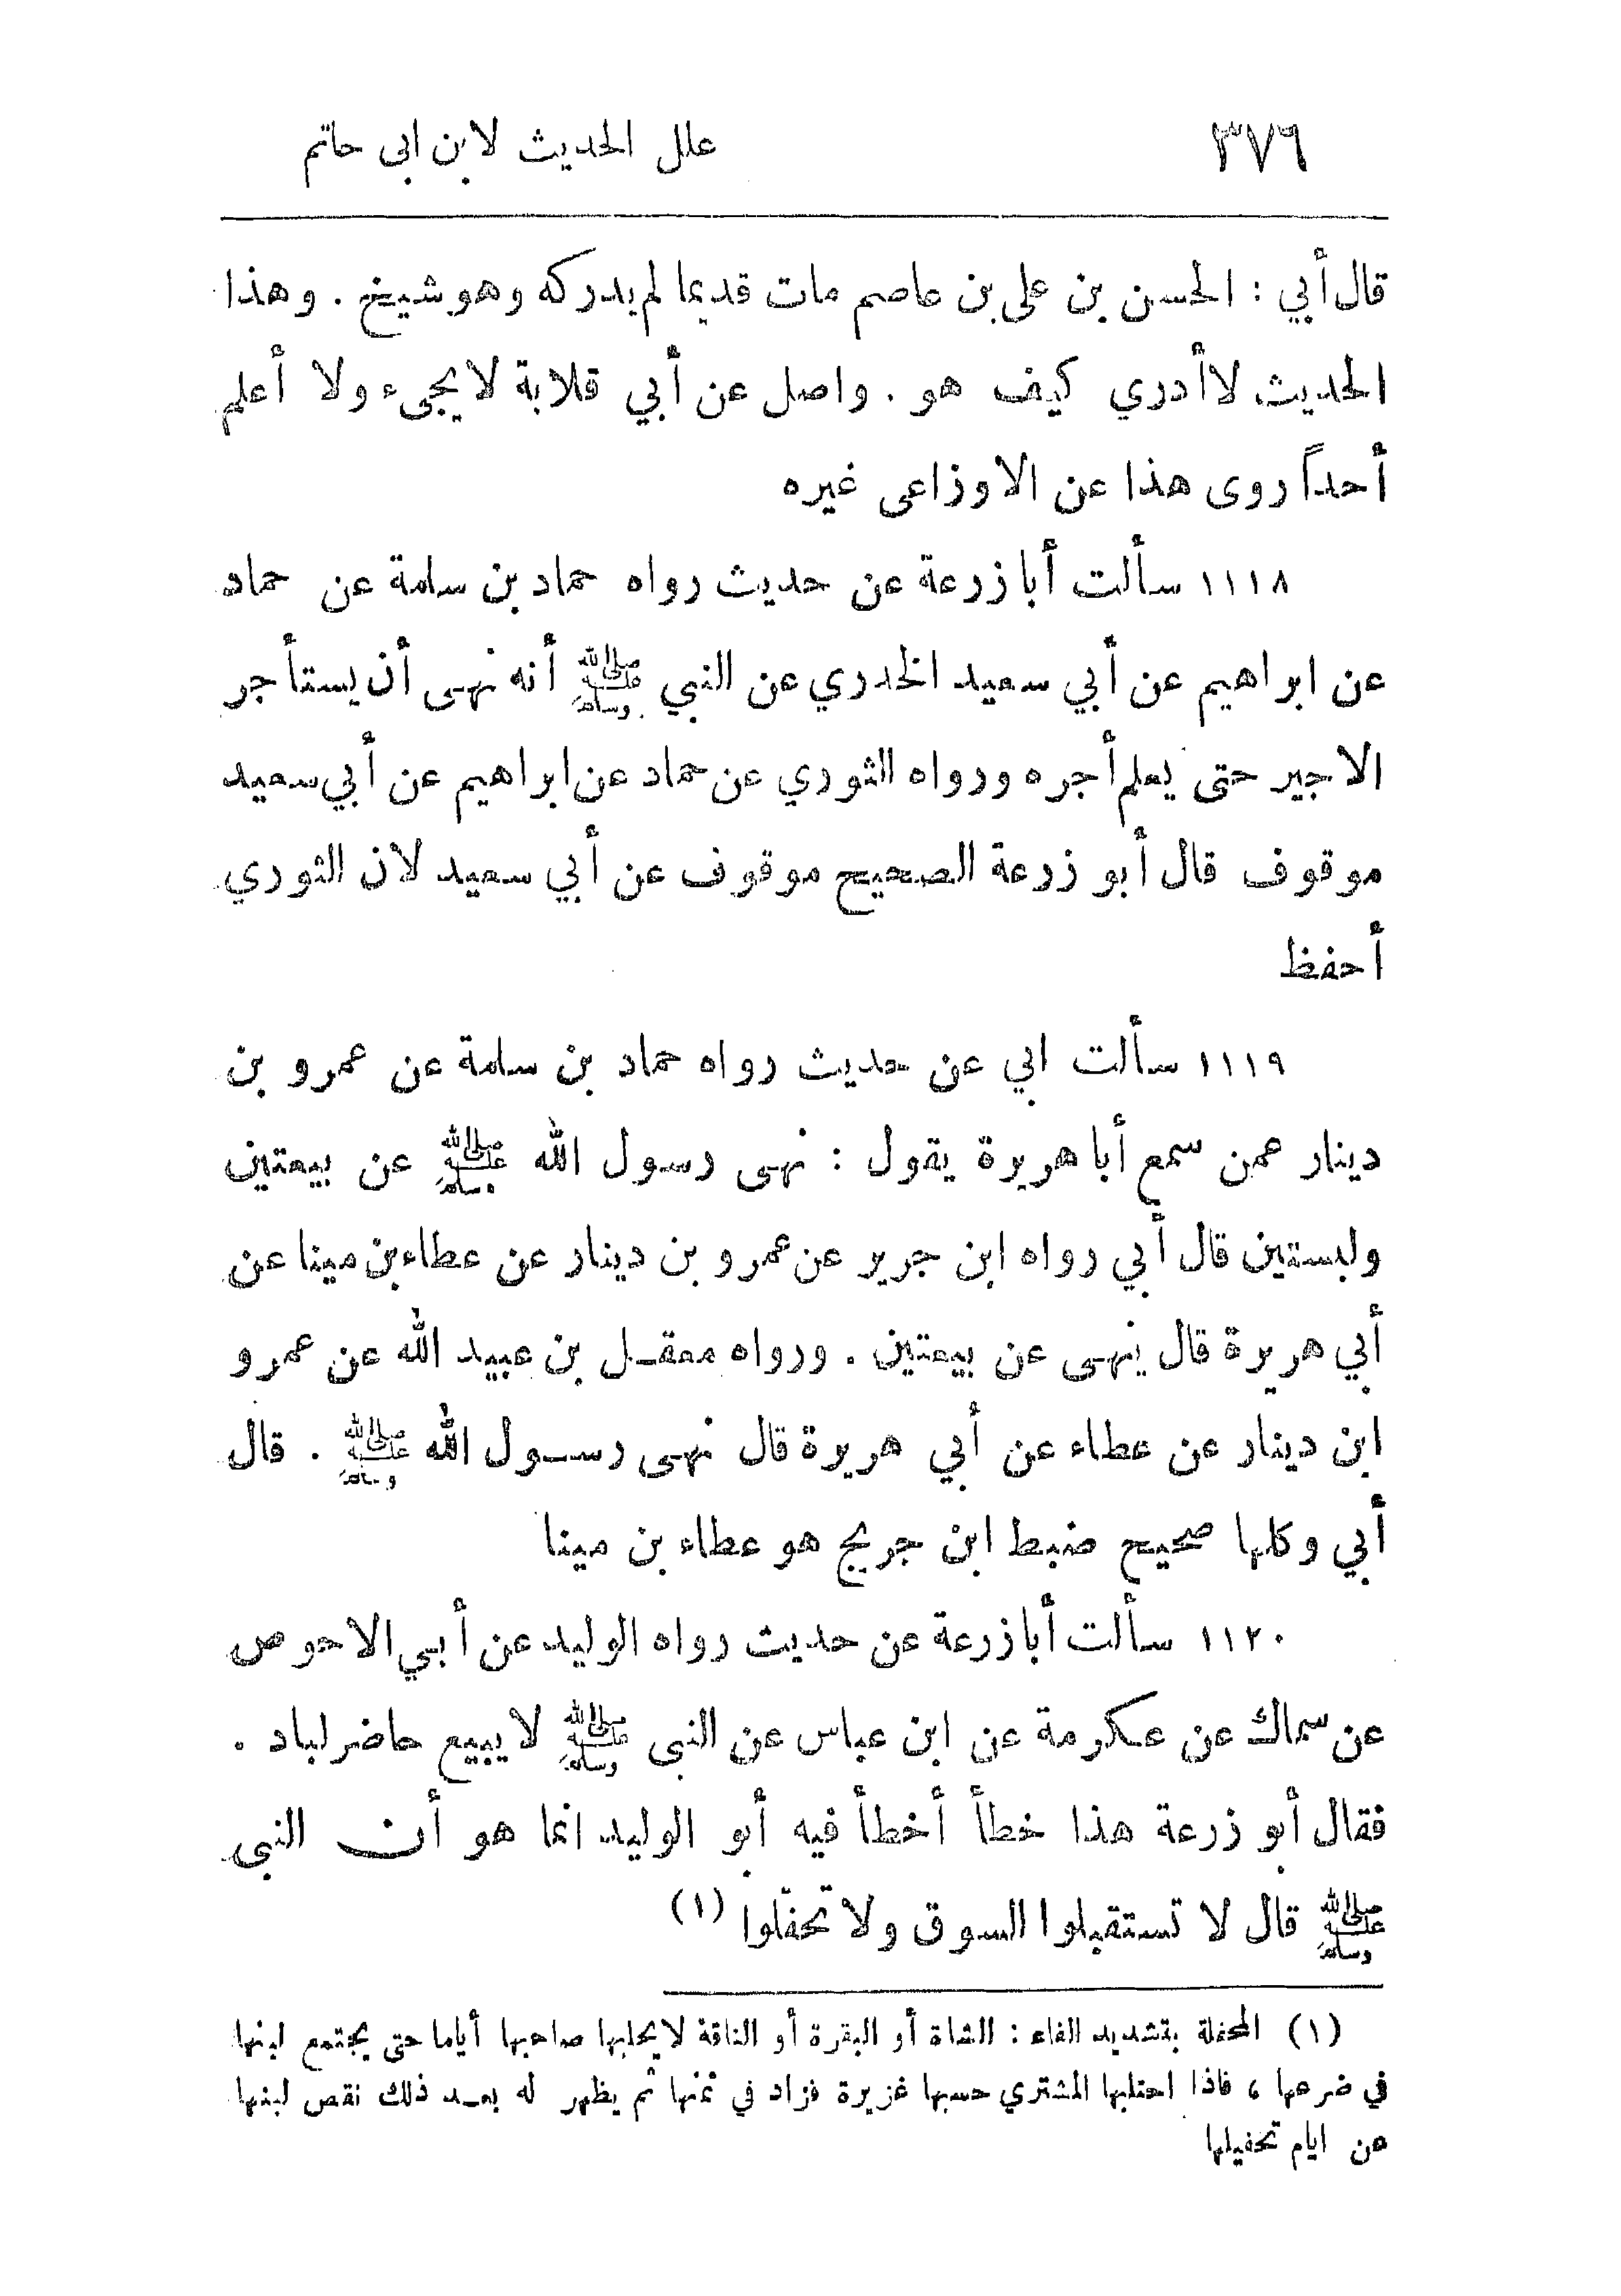 ٣٧٦ علل الحديث لابن ابى حاتم
قال أبي : الحسن بن على بن عاصم مات قديما لم يدركه وهو شيخ . وهذا
الحديث لا أدري كيف هو . واصل عن أبي قلابة لا يجىء ولا أعلم
أحداً روى هذا عن الاوزاعى غيره
١١١٨ سألت أبا زرعة عن حديث رواه حماد بن سلمة عن حماد
عن ابراهيم عن أبي سعيد الخدري عن النبي ﷺ أنه نهى أن يستأجر
الاجير حتى يعلم أجره ورواه الثوري عن حماد عن ابراهيم عن أبي سعيد
موقوف قال أبو زرعة الصحيح موقوف عن أبي سعيد لان الثوري
أحفظ
١١١٩ سألت ابي عن حديث رواه حماد بن سلمة عن عمرو بن
دينار عمن سمع أبا هريرة يقول : نهى رسول الله ﷺ عن بيعتين
ولبستين قال أبي رواه ابن جرير عن عمرو بن دينار عن عطاء بن مينا عن
أبي هريرة قال ينهى عن بيعتين . ورواه معقل بن عبيد الله عن عمرو
ابن دينار عن عطاء عن أبي هريرة قال نهى رسول الله ﷺ . قال
أبي وكلها صحيح ضبط ابن جريج هو عطاء بن مينا
١١٢٠ سألت أبا زرعة عن حديث رواه الوليد عن أبي الاحوص
عن سماك عن عكرمة عن ابن عباس عن النبى ﷺ لا يبيع حاضر لباد .
فقال أبو زرعة هذا خطأ أخطأ فيه أبو الوليد انما هو أن النبى
ﷺ قال لا تستقبلوا السوق ولا تحفّلوا (١)
(١) المحفلة بتشديد الفاء : الشاة أو البقرة أو الناقة لا يحلبها صاحبها أياما حتى يجتمع لبنها
في ضرعها ، فاذا احتلبها المشتري حسبها غزيرة فزاد في ثمنها ثم يظهر له بعد ذلك نقص لبنها
عن ايام تحفيلها